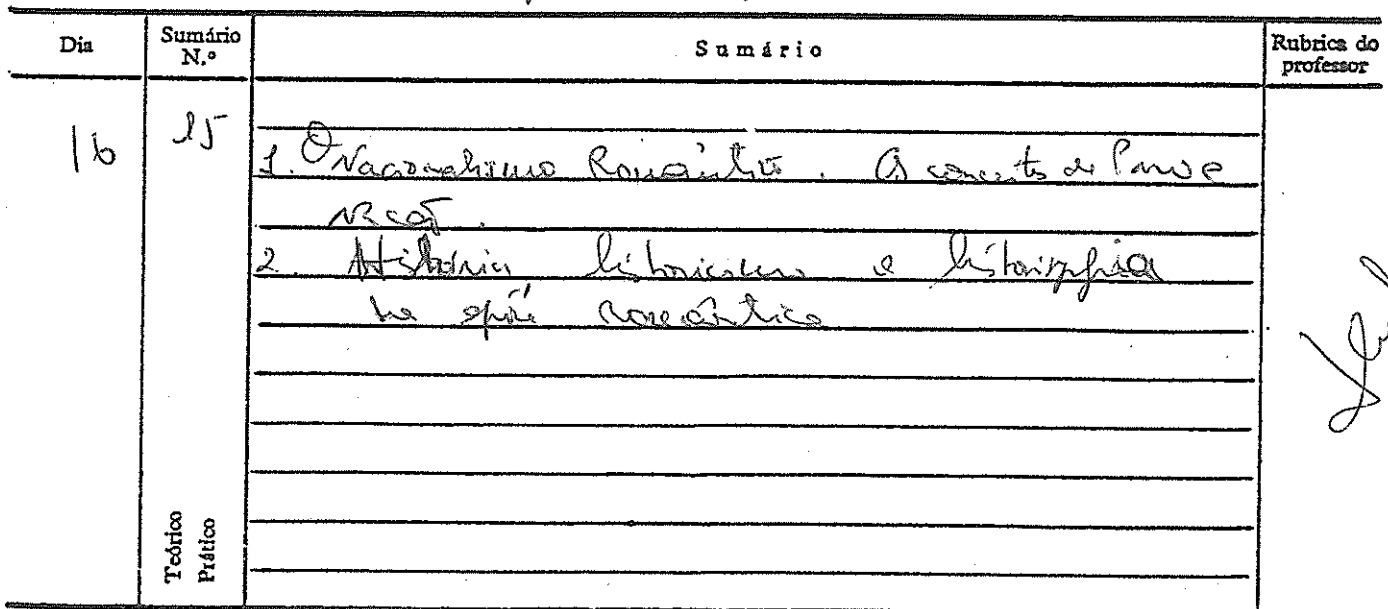 Dia
Sumário N.º
Sumário
Rubrica do professor
16
15
1. O Nacionalismo Romântico. Os conceitos de Povo e
Nação.
2. História historicismo e historiografia
na época romântica
Teórico
Prático